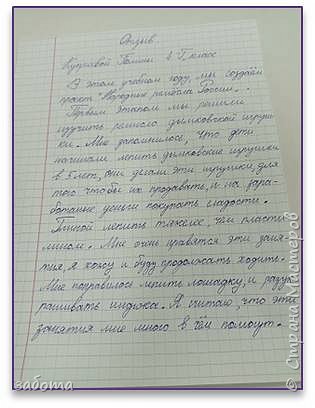 Отзыв.
Куприовой Полины 5 Г класс
В этом учебном году, мы создаём
проект "Народные промыслы России".
Первым этапом мы решили
изучить ремесло дымковской игруш-
ки. Мне запомнилось, что дети
начинали лепить дымковские игрушки
в 5 лет, они делали эти игрушки, для
того чтобы их продавать, и на зара-
ботанные деньги покупать сладости.
Глиной лепить тяжелее, чем пласти-
лином. Мне очень нравятся эти заня-
тия, я хожу и буду продолжать ходить.
Мне понравилось лепить лошадку, и разук-
рашивать индюка. Я считаю, что эти
занятия мне много в чём помогут.
забота
© Страна Мастеров